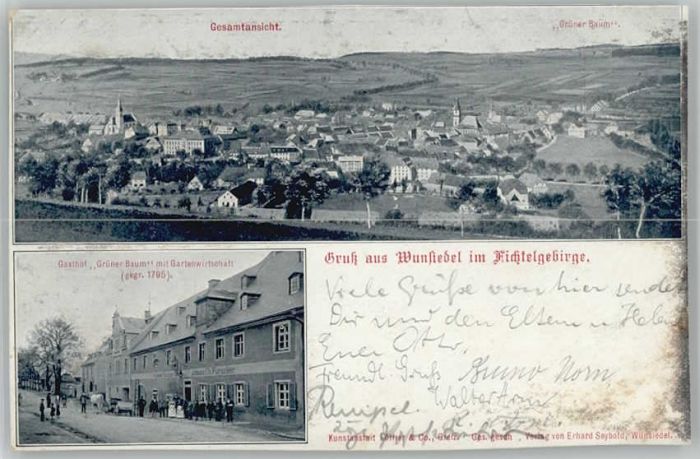 Gesamtansicht.
„Grüner Baum“.
Gasthof „Grüner Baum“ mit Gartenwirtschaft
(gegr. 1795).
Gruß aus Wunsiedel im Fichtelgebirge.
Viele Grüße von hier sendet
Dir und den Eltern u.
Euer Otto.
Freundl. Gruß Bruno Horn
Walter Horn
Kunstanstalt & Co., Greiz. Ges. gesch. Verlag von Erhard Seybold, Wunsiedel.